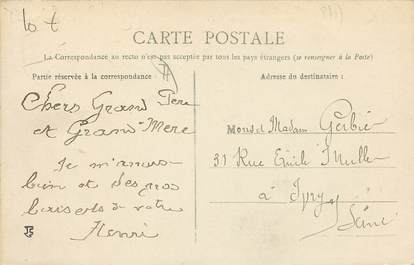 CARTE POSTALE
La Correspondance au recto n'est pas acceptée par tous les pays étrangers (se renseigner à la Poste)
Partie réservée à la correspondance
Adresse du destinataire :
Chers Grand Père
et Grand Mère
Je m'amuse
bien et des gros
baisers à votre
Henri
Mons et Madam Gerbié
31 Rue Emile
à Ivry s/
Seine